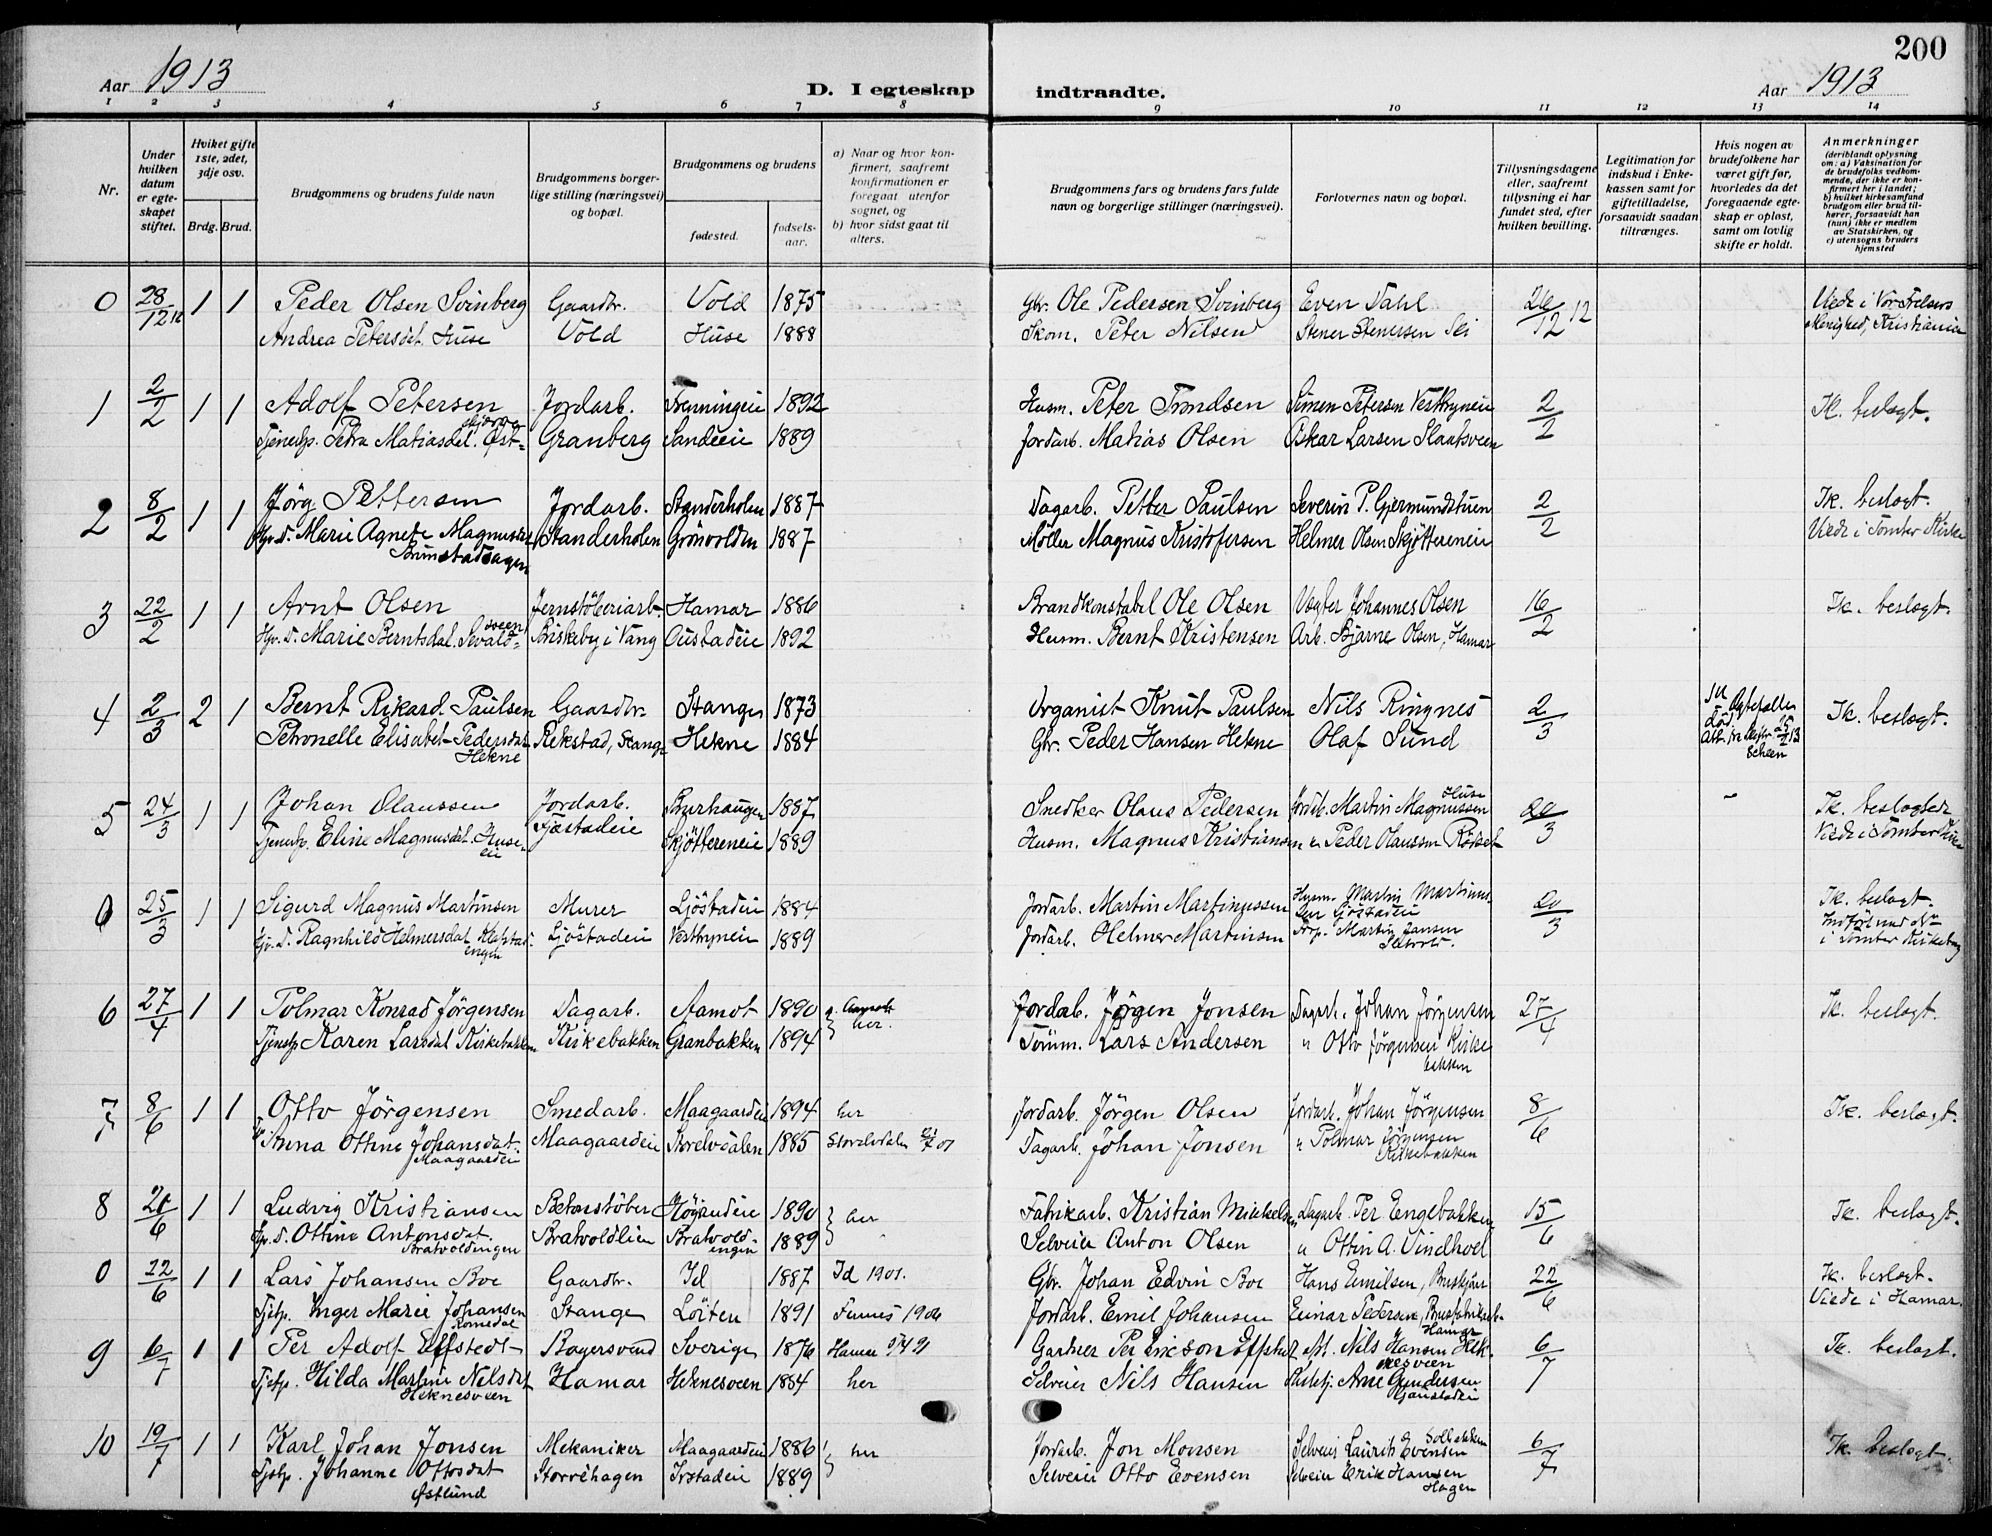 200
Aar 1913
D. I egteskap
indtraadte.
Aar 1913
1 2 3 4 5 6 7 8 9 10 11 12 13 14
Nr.
Under hvilken datum er egteskapet stiftet.
Hviket gifte 1ste, 2det, 3dje osv.
Brdg. Brud.
Brudgommens og brudens fulde navn
Brudgommens borgerlige stilling (næringsvei) og bopæl.
Brudgommens og brudens
fødested. fødselsaar.
a) Naar og hvor konfirmert, saafremt konfirmationen er foregaat utenfor sognet, og
b) hvor sidst gaat til alters.
Brudgommens fars og brudens fars fulde navn og borgerlige stillinger (næringsvei).
Forlovernes navn og bopæl.
Tillysningsdagene eller, saafremt tillysning ei har fundet sted, efter hvilken bevilling.
Legitimation for indskud i Enkekassen samt for giftetilladelse, forsaavidt saadan tiltrænges.
Hvis nogen av brudefolkene har været gift før, hvorledes da det foregaaende egteskap er opløst, samt om lovlig skifte er holdt.
Anmerkninger
(deriblandt oplysning om: a) Vaksination for de brudefolks vedkommende, der ikke er konfirmert her i landet; b) hvilket kirkesamfund brudgom eller brud tilhører, forsaavidt han (hun) ikke er medlem av Statskirken, og c) utensogns bruders hjemsted
0 28/12 12 1 1 Peder Olsen Svinberg Gaardbr. Vold 1875 Gbr. Ole Pedersen Svinberg Even Dahl 26/12 12 Viede i Vor Frelsers
Andrea Petersdt. Huse Vold Huse 1888 Skom. Peter Nilsen Stener Stenersen Menighed, Kristiania
1 2/2 1 1 Adolf Petersen Jordarb. 1892 Husm. Peter Trondsen Simen Petersen 2/2 Ik. beslegt.
Tjenestp. Petra Matiasdat. Granberg Sandeeie 1889 Jordarb. Matias Olsen Oskar Larsen Slaatsveen
2 8/2 1 1 Jörg Pettersen Jordarb. Standerholen 1887 Dagarb. Petter Paulsen Severin P. Gjermundstuen 2/2 Ik. beslegt.
Hjv. d. Marie Agnete Magnusdat. Standerholen Grönvolden 1887 Möller Magnus Kristofersen Helmer Olsen Skjöttereneie Viede i Tomter Kirke
3 22/2 1 1 Arnt Olsen Jernstöberiarb. Hamar 1886 Brandkonstabel Ole Olsen Vegter Johannes Olsen 16/2 Ik. beslegt.
Hjv. d. Marie Berntsdat. Briskeby i Vang Austadeie 1892 Husm. Bernt Kristensen Arb. Bjarne Olsen, Hamar
4 2/3 2 1 Bernt Rikard Paulsen Gaardbr. Stange 1873 Organist Knut Paulsen Nils Ringnes 2/3 Ik. beslegt.
Petronelle Elisabet Pedersdat. Rekstad, Stange Hekne 1884 Gbr. Peder Hansen Hekne Olaf Sund
Hekne
5 24/3 1 1 Johan Olaussen Jordarb. Burhaugen 1887 Snedker Olaus Pedersen Jordb. Martin Magnussen Huse 20/3 Ik. beslegtede
Tjenestp. Eline Magnusdat. Huseeie Fjæstadeie Skjöttereneie 1889 Husm. Magnus Kristiansen " Peder Olaussen Viede i Tomter Kirke
0 25/3 1 1 Sigurd Magnus Martinsen Murer Ljöstadeie 1884 Jordarb. Martin Martinussen Husm. Martin Martinussen Ljöstadeie 20/3 Ik. beslegt.
Hjv. d. Ragnhild Helmersdat. Ljöstadeie 1889 Jordarb. Helmer Martinsen Martin Jansen i Tomter Kirkebog
6 27/4 1 1 Tolmar Konrad Jörgensen Dagarb. Aamot 1890 Jordab. Jörgen Jonsen Dagarb. Johan Jörgensen 27/4 Ik. beslegt.
Tjenstp. Karen Larsdat Kirkebakken Kirkebakken Granbakken 1894 her. Tömm. Lars Andersen " Otto Jörgensen Kirkebakken
7 8/6 1 1 Otto Jörgensen Smedarb. Maagaardeie 1894 her Jordarb. Jörgen Olsen Jordarb. Johan Jörgensen 8/6 Ik. beslegt.
Anna Ottine Johansdat. Maagaardeie Maagaardeie Storelvdalen 1885 Storelvdalen Dagarb. Johan Jonsen " Tolmar Jörgensen Kirkebakken
8 1 1 Ludvig Kristiansen Betonstöber 1890 her Fabrikarb. Kristian Mikkelsen Dagarb. Per Engebakken 15/6 Ik. beslegt.
Hjv. d. Ottine Antonsdat. Bratvoldengen Bratvoldlien Bratvoldengen 1889 Selveier Anton Olsen " Ottin A. Vindhoel
0 22/6 1 1 Lars Johansen Boe Gaardbr. Id 1887 Id 1901. Gbr. Johan Edvin Boe Hans Emilsen, 22/6 Ik. beslegt.
Tjstp. Inger Marie Johansen Romedal Stange Löiten 1891 Furnes 1906 Jordarb. Emil Johansen Einar Pedersen, Hamar Viede i Hamar.
9 6/7 1 1 Per Adolf Bagersvend Sverige 1876 Hamar Gartner Per Ericson Nils Hansen Heknesveen 6/7 Ik. beslegt.
Tjstp. Hilda Martine Nilsdat Heknesveen Hamar Heknesveen 1884 her Selveier Nils Hansen Arne Gundersen
10 19/7 1 1 Karl Johan Jonsen Mekaniker Maagaardeie 1886 her Jordarb. Jon Monsen Selveier Laurits Evensen Solbakken 6/7 Ik. beslegt.
Tjstp. Johanne Ottosdat Østlund Storvehagen Irstadeie 1889 Selveier Otto Evensen Selveier Erik Hansen Hagen